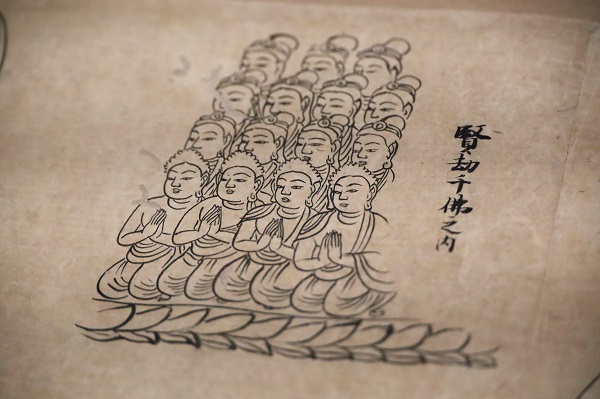 賢劫千佛之内